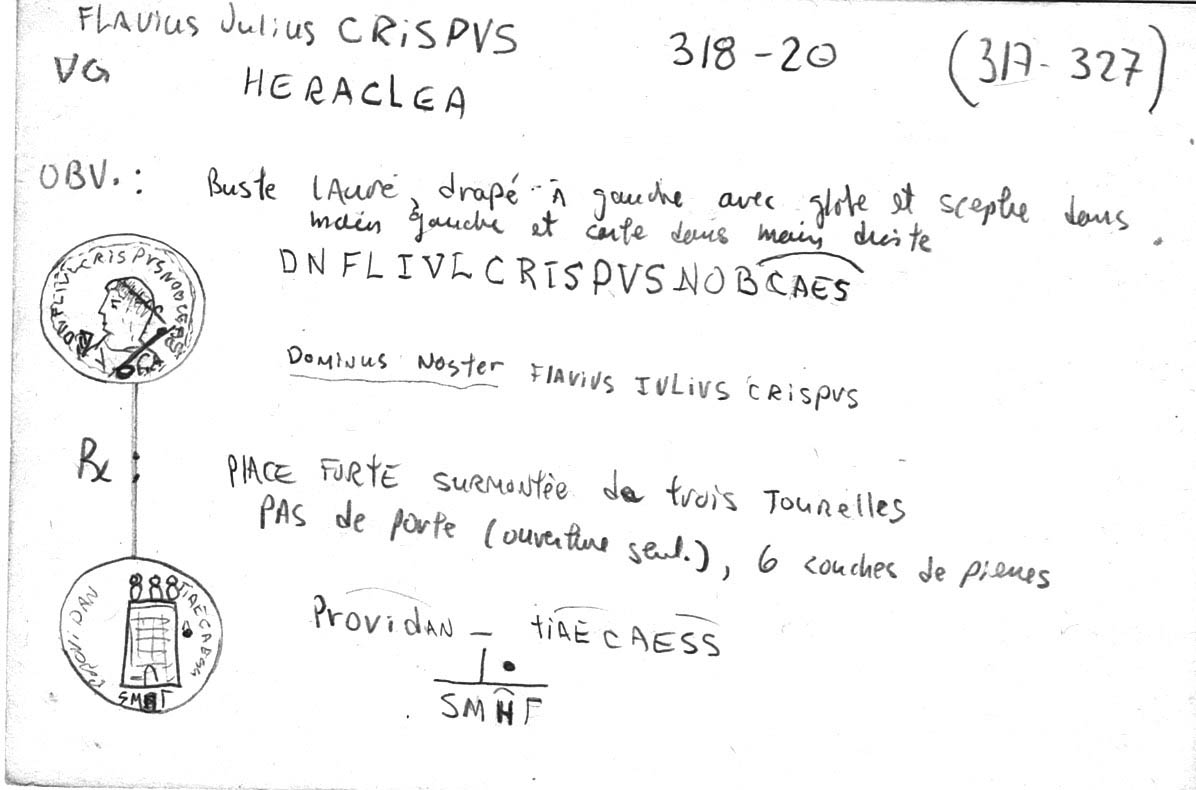 FLAVius Julius CRiSPVS 318-20 (317-327)
VG HERACLEA
OBV. : Buste lAuré, drapé à gauche avec globe et sceptre dans
main gauche et carte dans main droite.
DNFLIVLCRISPVSNOBCAES
DNFLIVLCRISPVSNOBCAES
DOMINUS NosteR FlAViVS IVLiVS CRispVS
Rx : PlACE FORtE SURMONtée de trois TOURelles
PAS de porte (ouverture seul.), 6 couches de pierres
ProvidAN - tiAE CAESS
PROViDAN
TiAECAESS
SMHΓ
SMHΓ